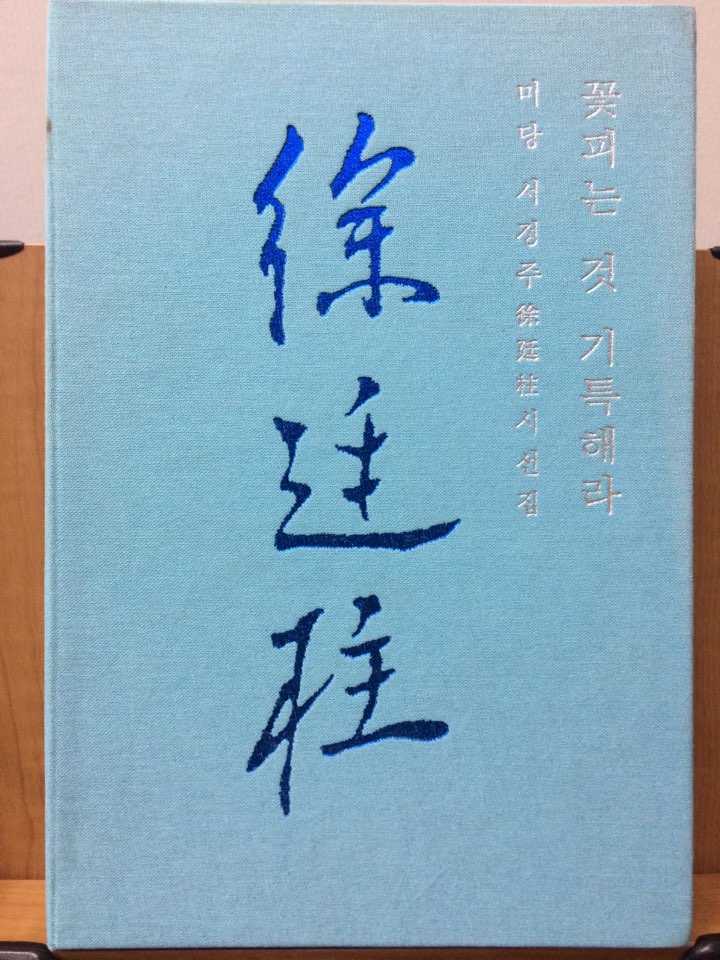 꽃피는 것 기특해라
미당 서정주 徐廷柱 시선집
徐廷柱